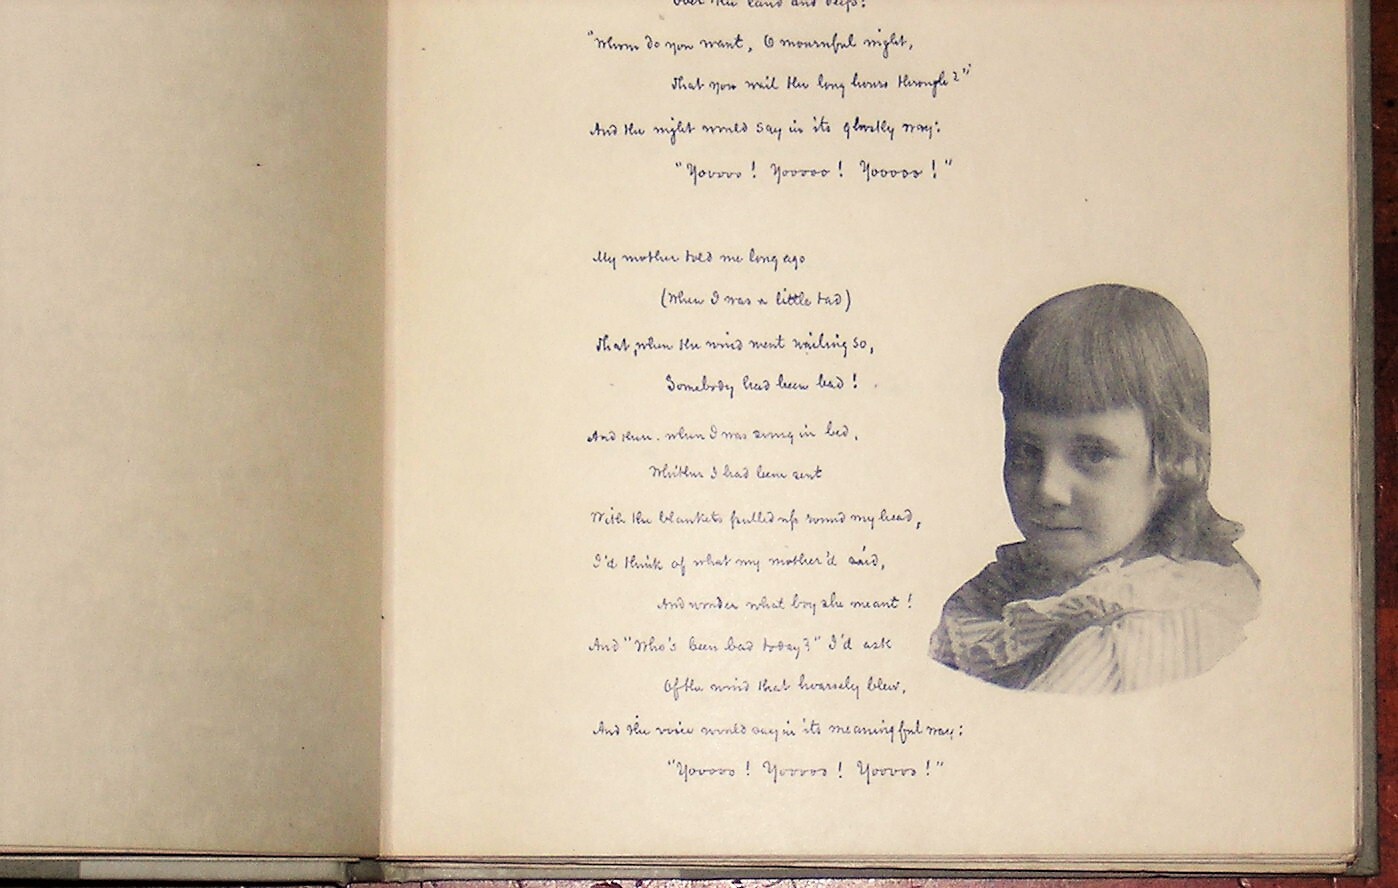 over the land and deeps:
"Whom do you want, O mournful night,
That you wail the long hours through?"
And the night would say in its ghostly way:
"Yooooo! Yooooo! Yooooo!"
My mother told me long ago
(When I was a little tad)
That, when the wind went wailing so,
Somebody had been bad!
And then, when I was snug in bed,
Whither I had been sent
With the blankets pulled up round my head,
I'd think of what my mother'd said,
And wonder what boy she meant!
And "Who's been bad today?" I'd ask
Of the wind that hoarsely blew,
And the voice would say in its meaningful way:
"Yooooo! Yooooo! Yooooo!"